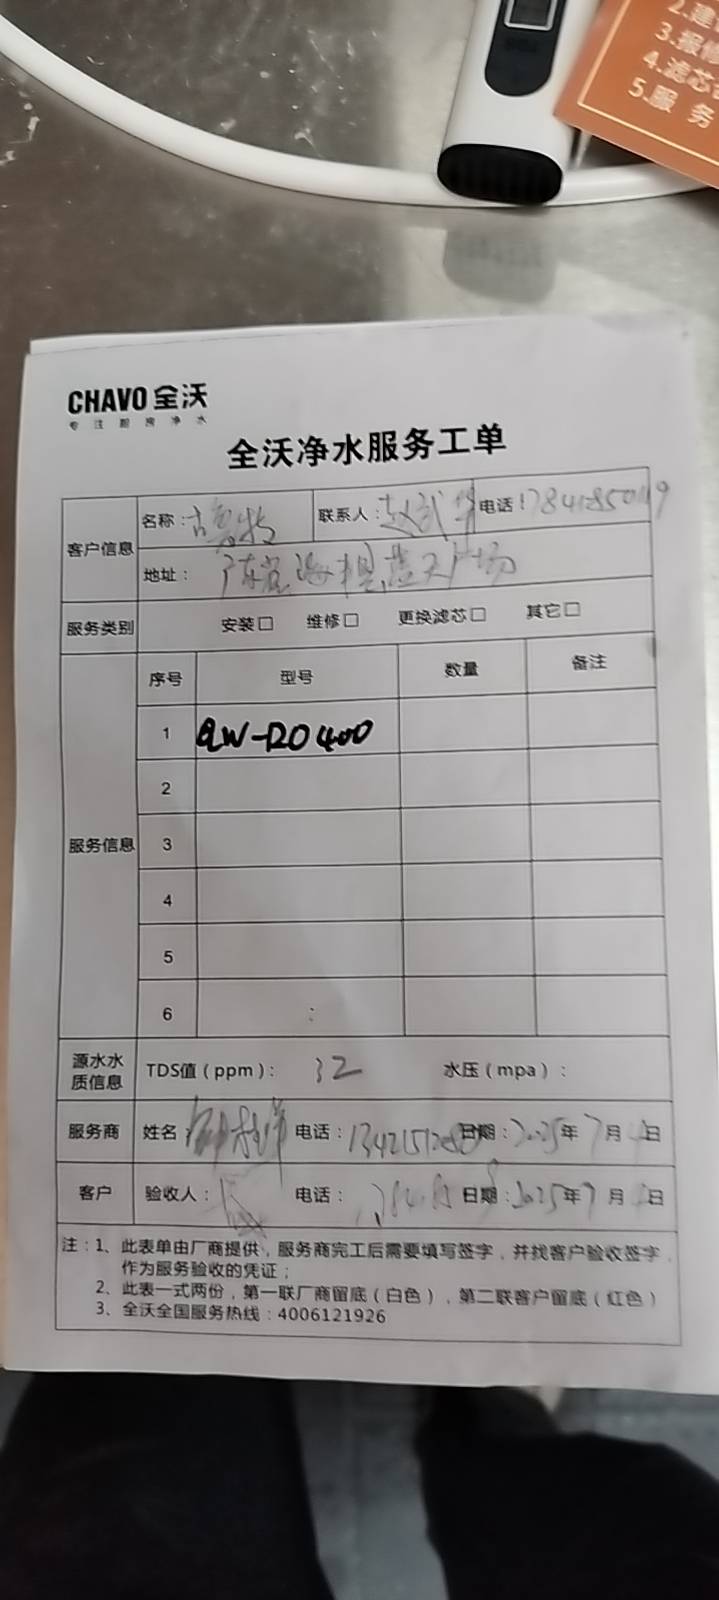 2.建
3.报修
4.滤芯
5.服 务
CHAVO 全沃
专 注 厨 房 净 水
全沃净水服务工单
客户信息 名称：古鲁牧 联系人：赵武华 电话：
地址：
服务类别 安装□ 维修□ 更换滤芯□ 其它□
服务信息 序号 型号 数量 备注
1 QW-RO400
2
3
4
5
6
源水水质信息 TDS值（ppm）： 32 水压（mpa）：
服务商 姓名 电话： 日期：2025年7月 日
客户 验收人： 电话： 日期：2025年7月 日
注：1、此表单由厂商提供，服务商完工后需要填写签字，并找客户验收签字，
作为服务验收的凭证；
2、此表一式两份，第一联厂商留底（白色），第二联客户留底（红色）
3、全沃全国服务热线：4006121926